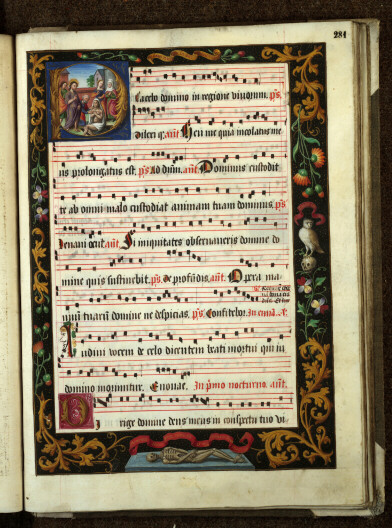 281
lacebo domino in regione vivorum. ps.
Dilexi q. ant. Heu me quia incolatus me
us prolongatus est. ps. Ad dnm. ant. Dominus custodit
te ab omni malo custodiat animam tuam dominus. ps.
Levavi ocul. ant. Si iniquitates observaveris domine do
mine quis sustinebit. ps. De profūdis. ant. Opera ma
nuū tuarū domine ne despicias. ps. Confitebor. In evāg. A.
Audivi vocem de celo dicentem beati mortui qui in
domino moriuntur. Evovae. In primo nocturno. ant.
Dirige domine deus meus in conspectu tuo vi